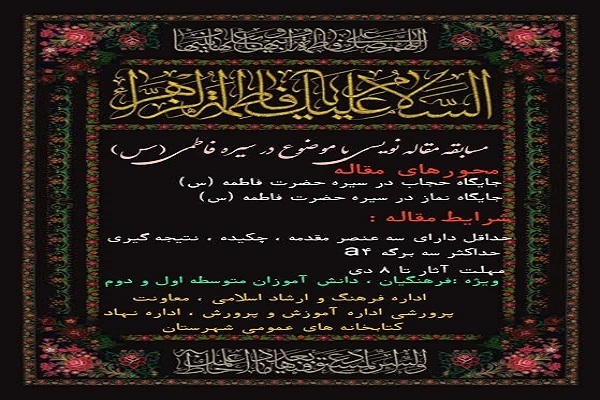 اللهم صل علی فاطمة و ابیها و بعلها و بنیها
السلام علیک یا فاطمة الزهرا
مسابقه مقاله نویسی با موضوع در سیره فاطمی (س)
محورهای مقاله
جایگاه حجاب در سیره حضرت فاطمه (س)
جایگاه نماز در سیره حضرت فاطمه (س)
شرایط مقاله :
حداقل دارای سه عنصر مقدمه ، چکیده ، نتیجه گیری
حداکثر سه برگه a۴
مهلت آثار تا ۸ دی
ویژه :فرهنگیان ، دانش آموزان متوسطه اول و دوم
اداره فرهنگ و ارشاد اسلامی ، معاونت
پرورشی اداره آموزش و پرورش ، اداره نهاد
کتابخانه های عمومی شهرستان